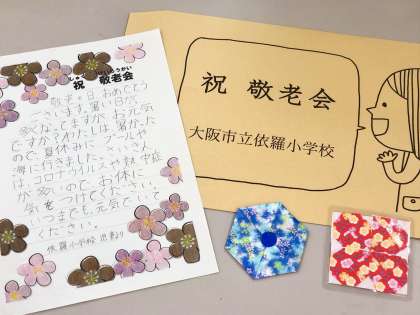 しゅく けいろうかい
祝 敬老会
敬老の日おめでとう
ございます。暑い日が
続くなですが、お元気
ですか?わたしは、暑かった
ので、夏休みに、プールや
海に行きました。さいきん
は、コロナウイルスや熱中症
が多いのでお体に
気をつけてください。
いつまでも、元気でいて
ください。
依羅小学校 児童より
祝 敬老会
大阪市立依羅小学校